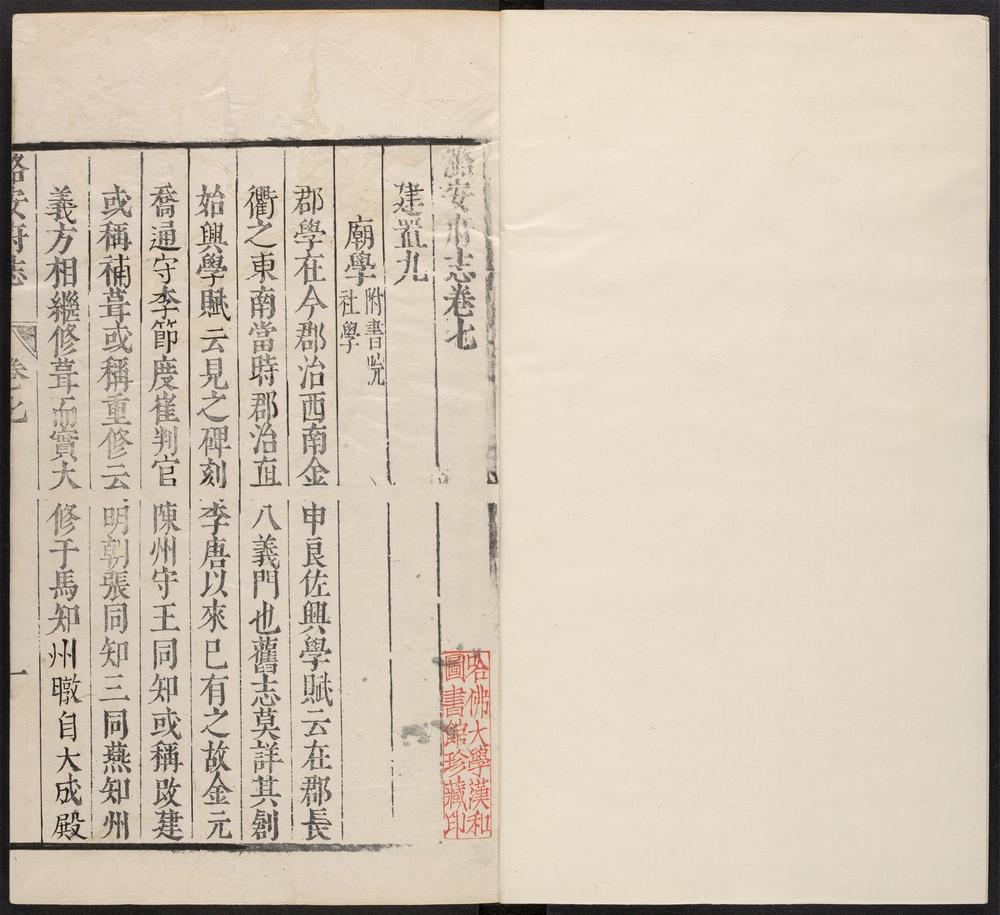 潞安府志卷七
建置九
廟學 附書院
社學
郡學在今郡治西南金申良佐興學賦云在郡長
衢之東南當時郡治直八義門也舊志莫詳其創
始興學賦云見之碑刻李唐以來已有之故金元
喬通守李節度崔判官陳州守王同知或稱改建
或稱補葺或稱重修云明朝張同知三同燕知州
義方相繼修葺而實大修于馬知州暾自大成殿
潞安府志 卷七 一
哈佛大學漢和
圖書館珍藏印